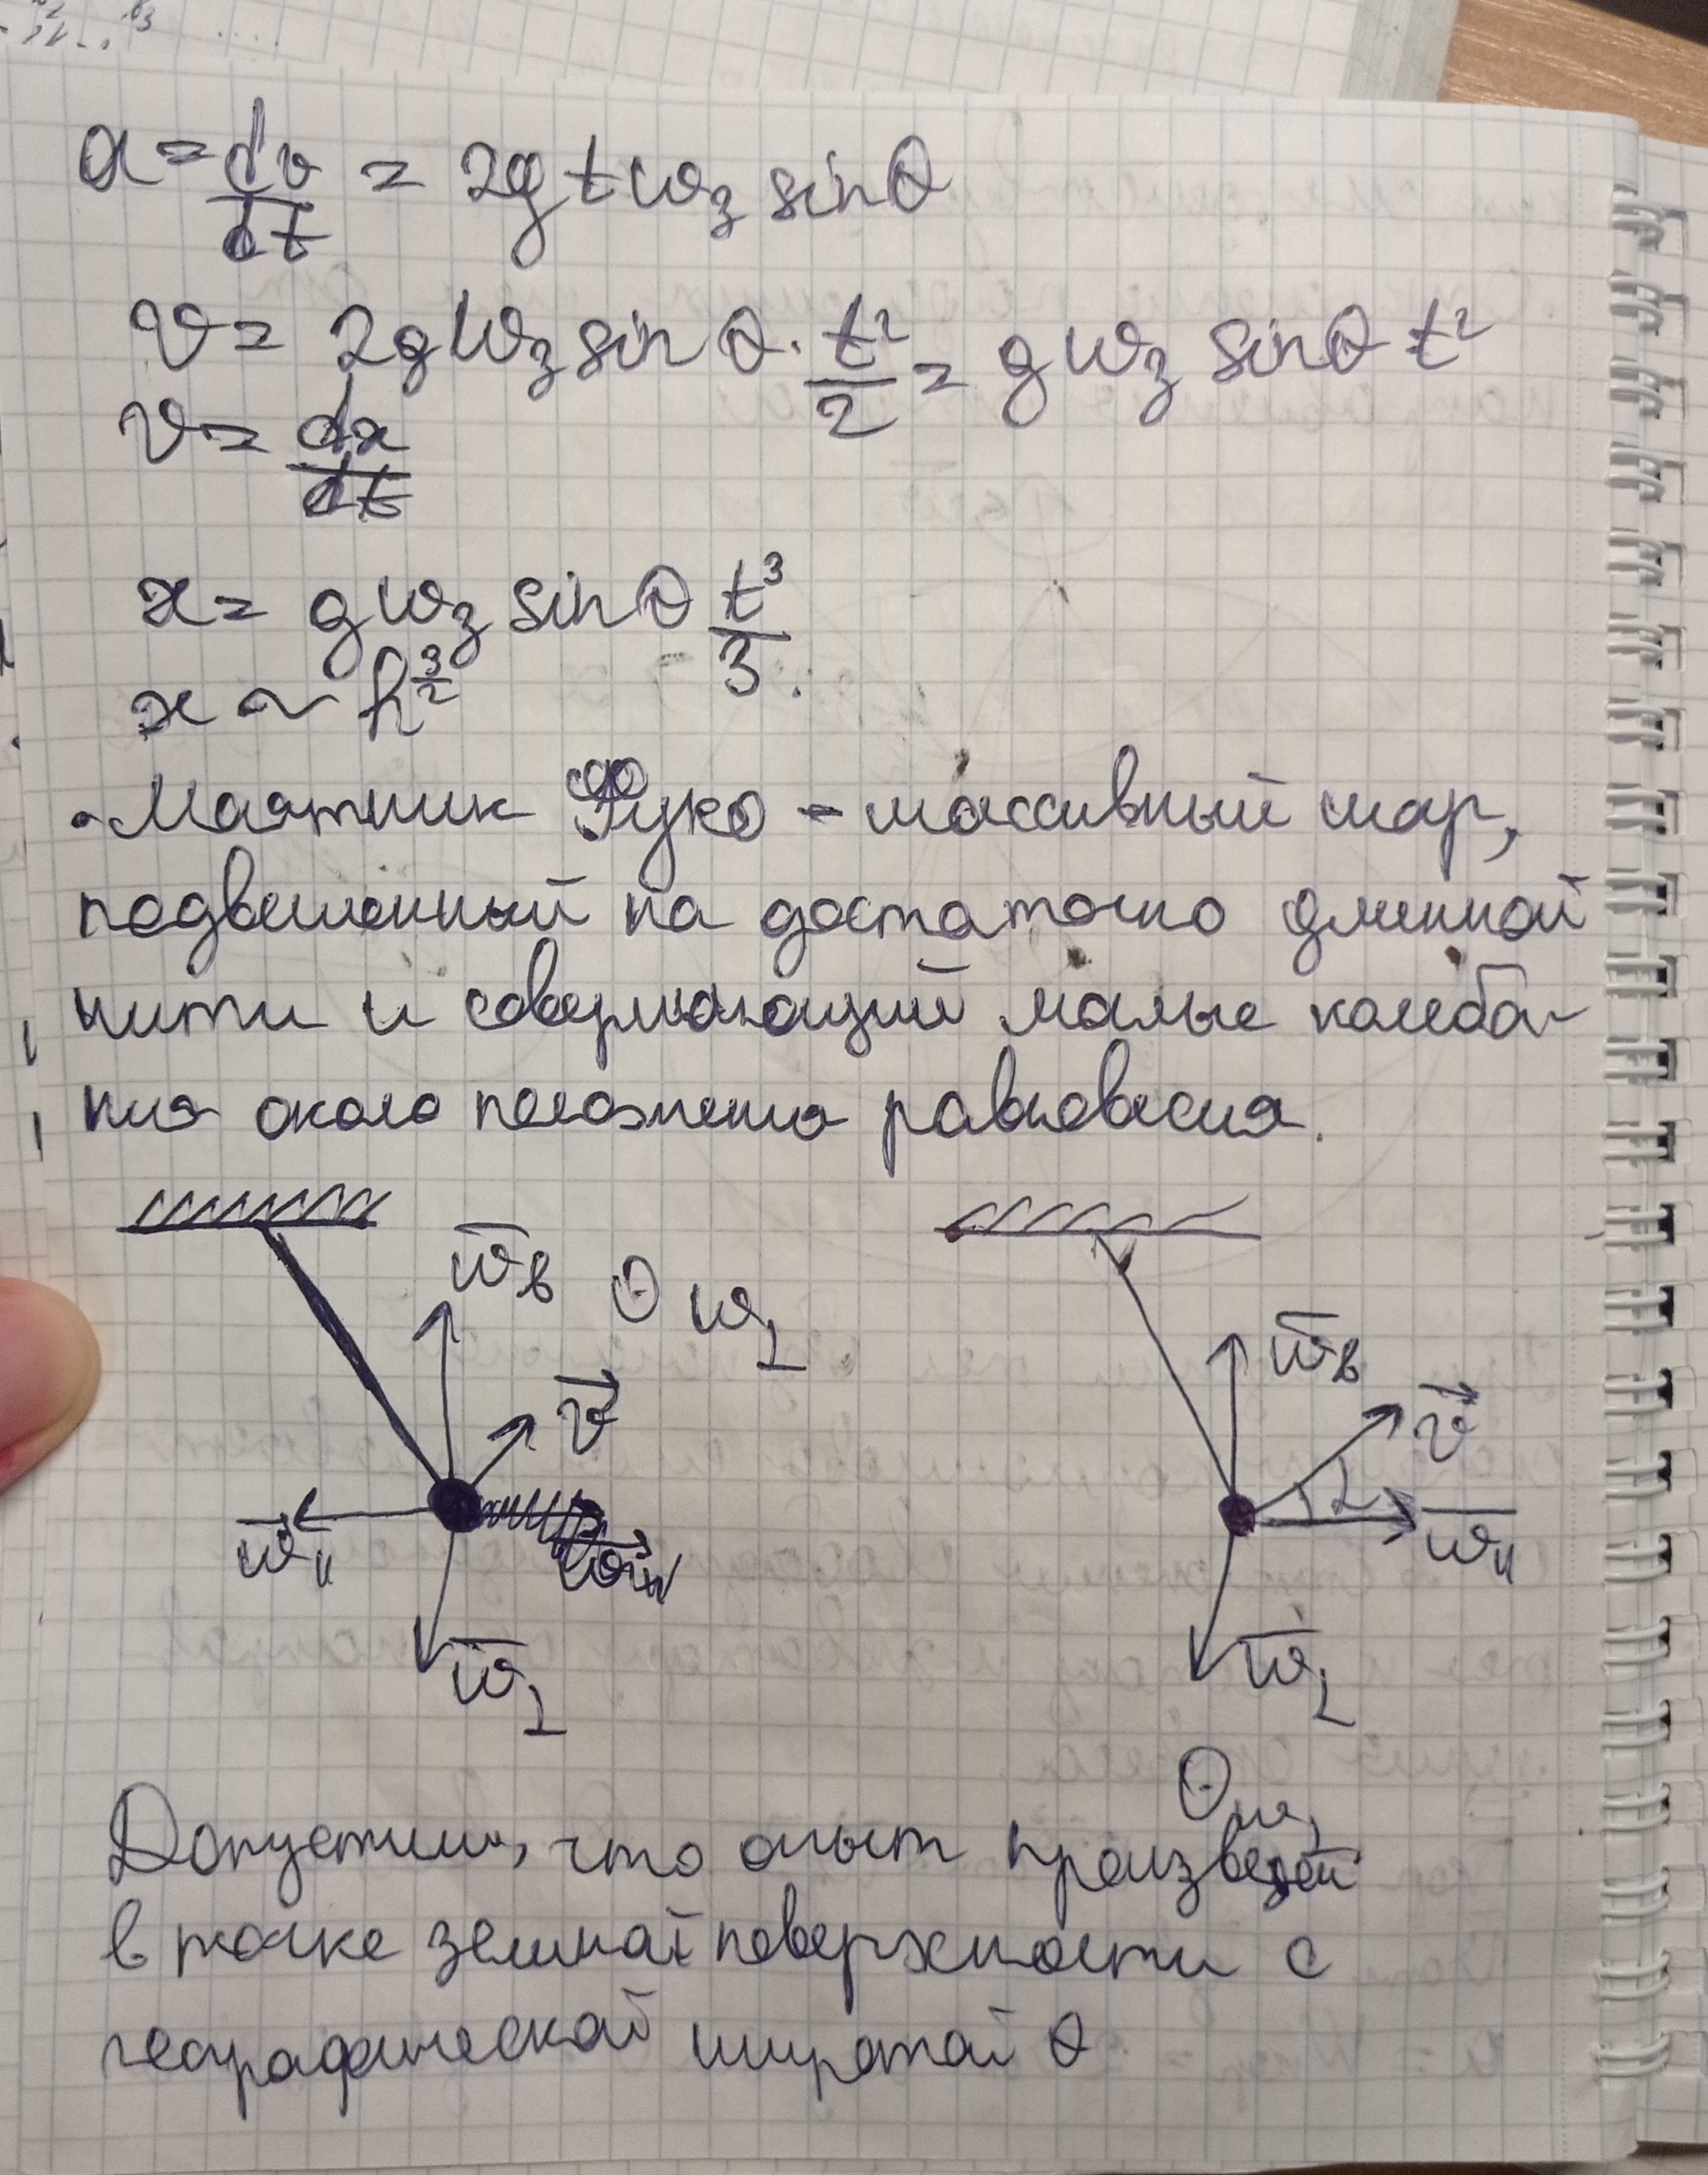 a = dv/dt = 2gtω₃ sinθ
v = 2gω₃ sinθ · t²/2 = gω₃ sinθ t²
v = dx/dt
x = gω₃ sinθ t³/3
x ~ h^(3/2)
• Маятник Фуко – массивный шар,
подвешенный на достаточно длинной
нити и совершающий малые колеба-
ния около положения равновесия.
ω_в ⊙ ω_⊥
v
ω_∥
ω_⊥
ω_в
v
α
ω_∥
ω_⊥
⊙ ω_⊥
Допустим, что опыт произведён
в точке земной поверхности с
географической широтой θ